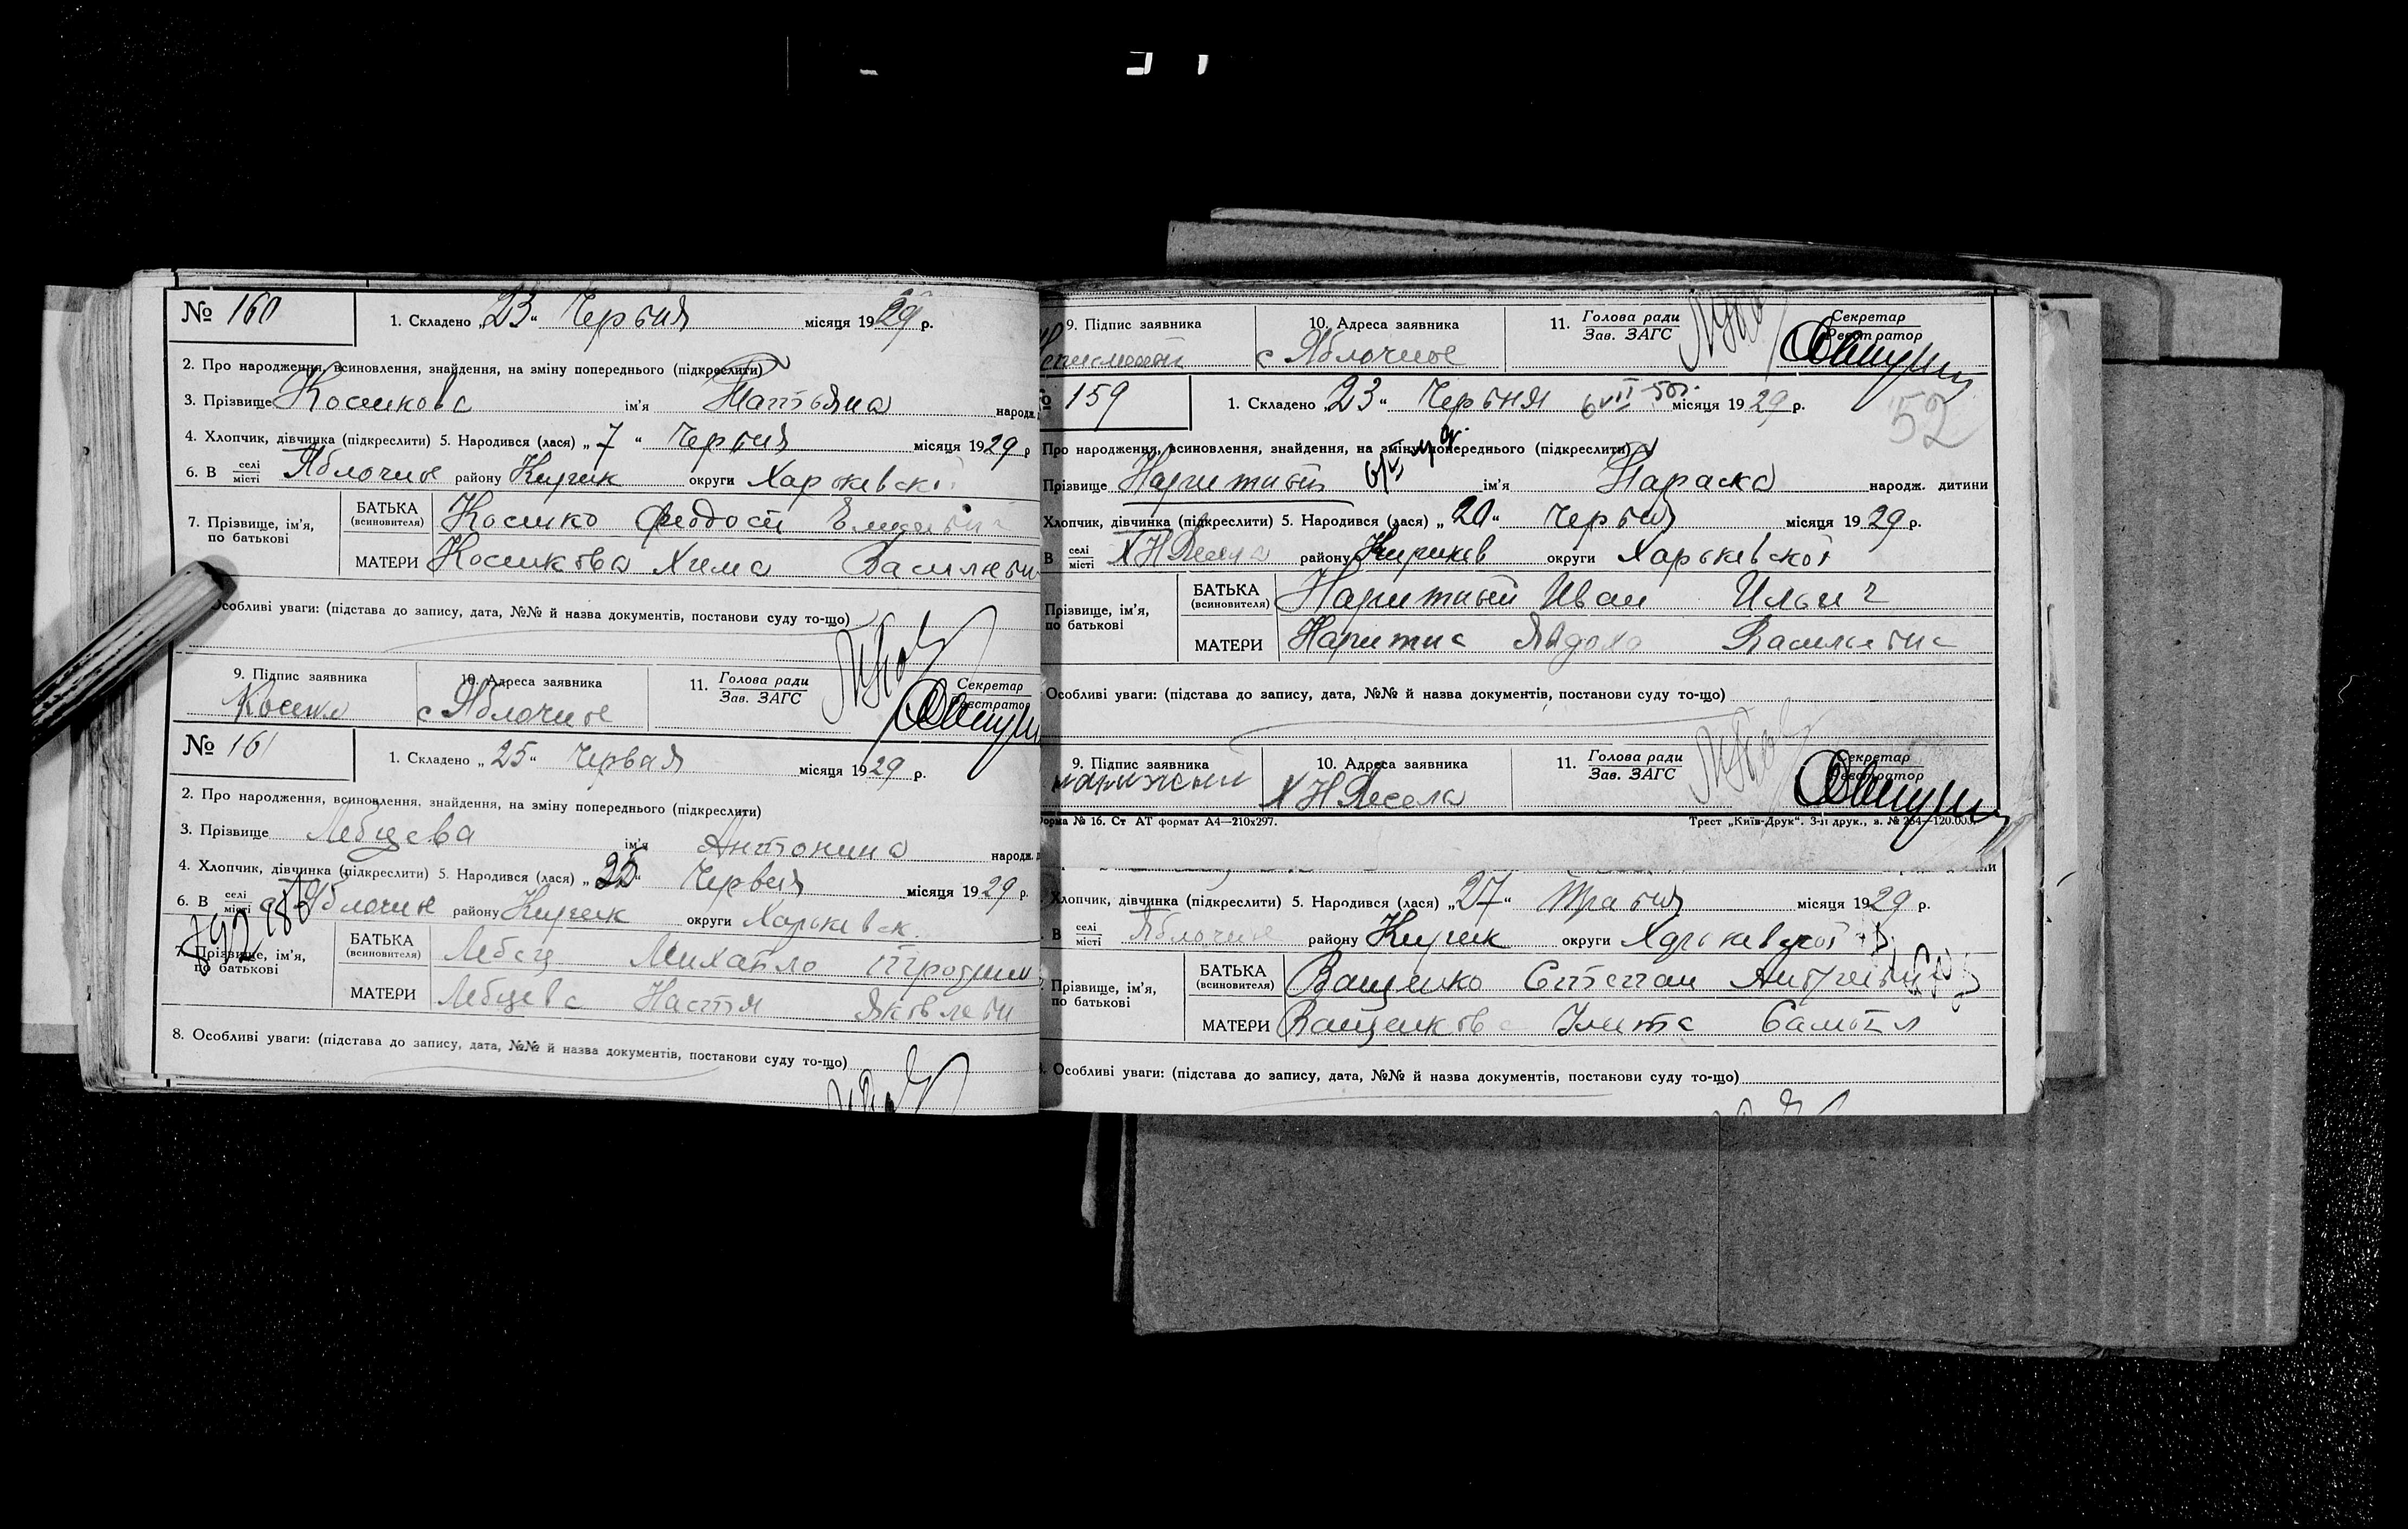 № 160
1. Складено „23“ Червня місяця 1929 р.
2. Про народження, всиновлення, знайдення, на зміну попереднього (підкреслити)
3. Прізвище Косикова ім'я Натьяна народж.
4. Хлопчик, дівчинка (підкреслити) 5. Народився (лася) „7“ Червня місяця 1929 р
6. В селі місті Яблочне району Кирик округи Харьківскі
7. Прізвище, ім'я, по батькові
БАТЬКА (всиновителя) Косико Феодосі
МАТЕРИ Косикова Хима Васильевн
Особливі уваги: (підстава до запису, дата, №№ й назва документів, постанови суду то-що)
9. Підпис заявника 10. Адреса заявника 11. Голова ради Зав. ЗАГС Секретар Реєстратор
Косико с Яблочное
№ 161
1. Складено „25“ Червня місяця 1929 р.
2. Про народження, всиновлення, знайдення, на зміну попереднього (підкреслити)
3. Прізвище Лебцева ім'я Антонина народж.
4. Хлопчик, дівчинка (підкреслити) 5. Народився (лася) „25“ Червня місяця 1929 р.
6. В селі місті с Яблочне району Кирик округи Харьківск.
7. Прізвище, ім'я, по батькові
БАТЬКА (всиновителя) Лебец Михайло
МАТЕРИ Лебцева Настя Яковлевн
8. Особливі уваги: (підстава до запису, дата, №№ й назва документів, постанови суду то-що)
9. Підпис заявника 10. Адреса заявника 11. Голова ради Зав. ЗАГС Секретар Реєстратор
с Яблочное
52
159
1. Складено „23“ Червня місяця 1929 р.
Про народження, всиновлення, знайдення, на зміну попереднього (підкреслити)
Прізвище Нарижный ім'я Параска народж. дитини
Хлопчик, дівчинка (підкреслити) 5. Народився (лася) „20“ Червня місяця 1929 р.
В селі місті Х Н Весела району Кириков округи Харьківскої
Прізвище, ім'я, по батькові
БАТЬКА (всиновителя) Нарижный Иван Ильич
МАТЕРИ Нарижна Явдоха Васильевна
Особливі уваги: (підстава до запису, дата, №№ й назва документів, постанови суду то-що)
9. Підпис заявника 10. Адреса заявника 11. Голова ради Зав. ЗАГС Секретар Реєстратор
Х Н Весела
Форма № 16. Ст АТ формат А4—210х297. Трест „Київ-Друк“. 3-я друк., з. № 264—120.000.
Хлопчик, дівчинка (підкреслити) 5. Народився (лася) „27“ Травня місяця 1929 р.
В селі місті Яблочне району Кирик округи Харьківскої
Прізвище, ім'я, по батькові
БАТЬКА (всиновителя) Ващенко Степан
МАТЕРИ Ващенкова Улита Самойл
Особливі уваги: (підстава до запису, дата, №№ й назва документів, постанови суду то-що)